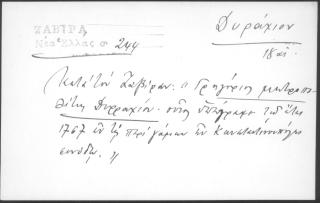 ΖΑΒΙΡΑ
Νέα Ἑλλάς σ. 244
Δυράχιον
18 αἰ.
Κατὰ τὸν Ζαβίραν: "Γρηγόριος μητροπο-
λίτης Δυρραχίου. οὗτος ὑπέγραψε τῷ ἔτει
1767 ἐν τῇ περὶ γάμων ἐν Κωνσταντινουπόλει
συνόδῳ."